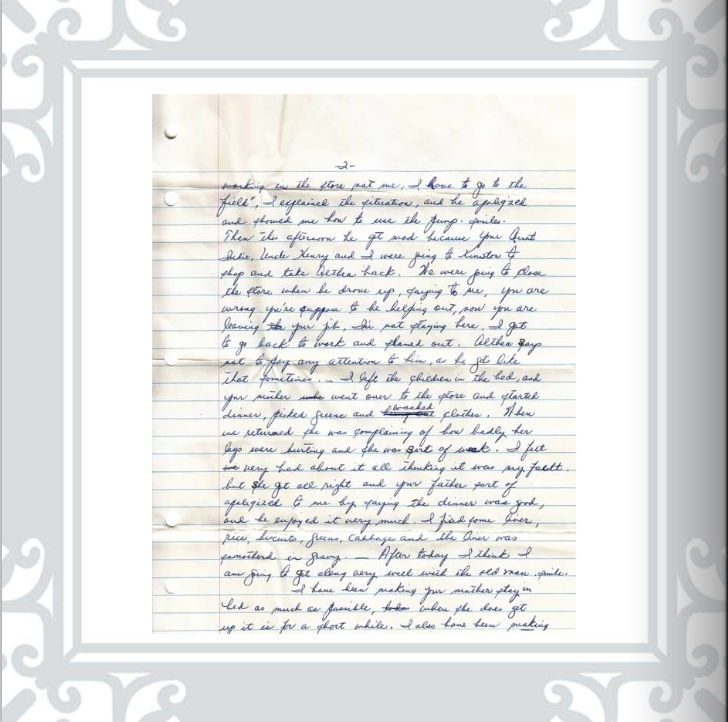 -2-
working in the store not me, I have to go to the
field", I explained the situation, and he apoligized
and showed me how to use the pump. smiles.
Then this afternoon he got mad because your Aunt
Julie, Uncle Henry and I were going to Kinston to
shop and take Althea back. We were going to close
the store when he drove up, saying to me, you are
wrong you're suppose to be helping out, now you are
leaving the your job, I'm not staying here. I got
to go back to work and planed out. Althea says
not to pay any attention to him, as he gets like
that sometimes. -- I left the children in the bed, and
your mother who went over to the store and started
dinner, picked greens and washed clothes. When
we returned she was complaining of how badly her
legs were hurting and she was sort of weak. I felt
very bad about it all thinking it was my fault.
but she got all right and your father sort of
apoligized to me by saying the dinner was good,
and he enjoyed it very much. I fixed some liver,
rice, biscuits, greens, cabbage and the liver was
smothered in gravy. — After today I think I
am going to get along very well with the old man. smile.
I have been making your mother stay in
bed as much as possible, when she does get
up it is for a short while. I also have been making